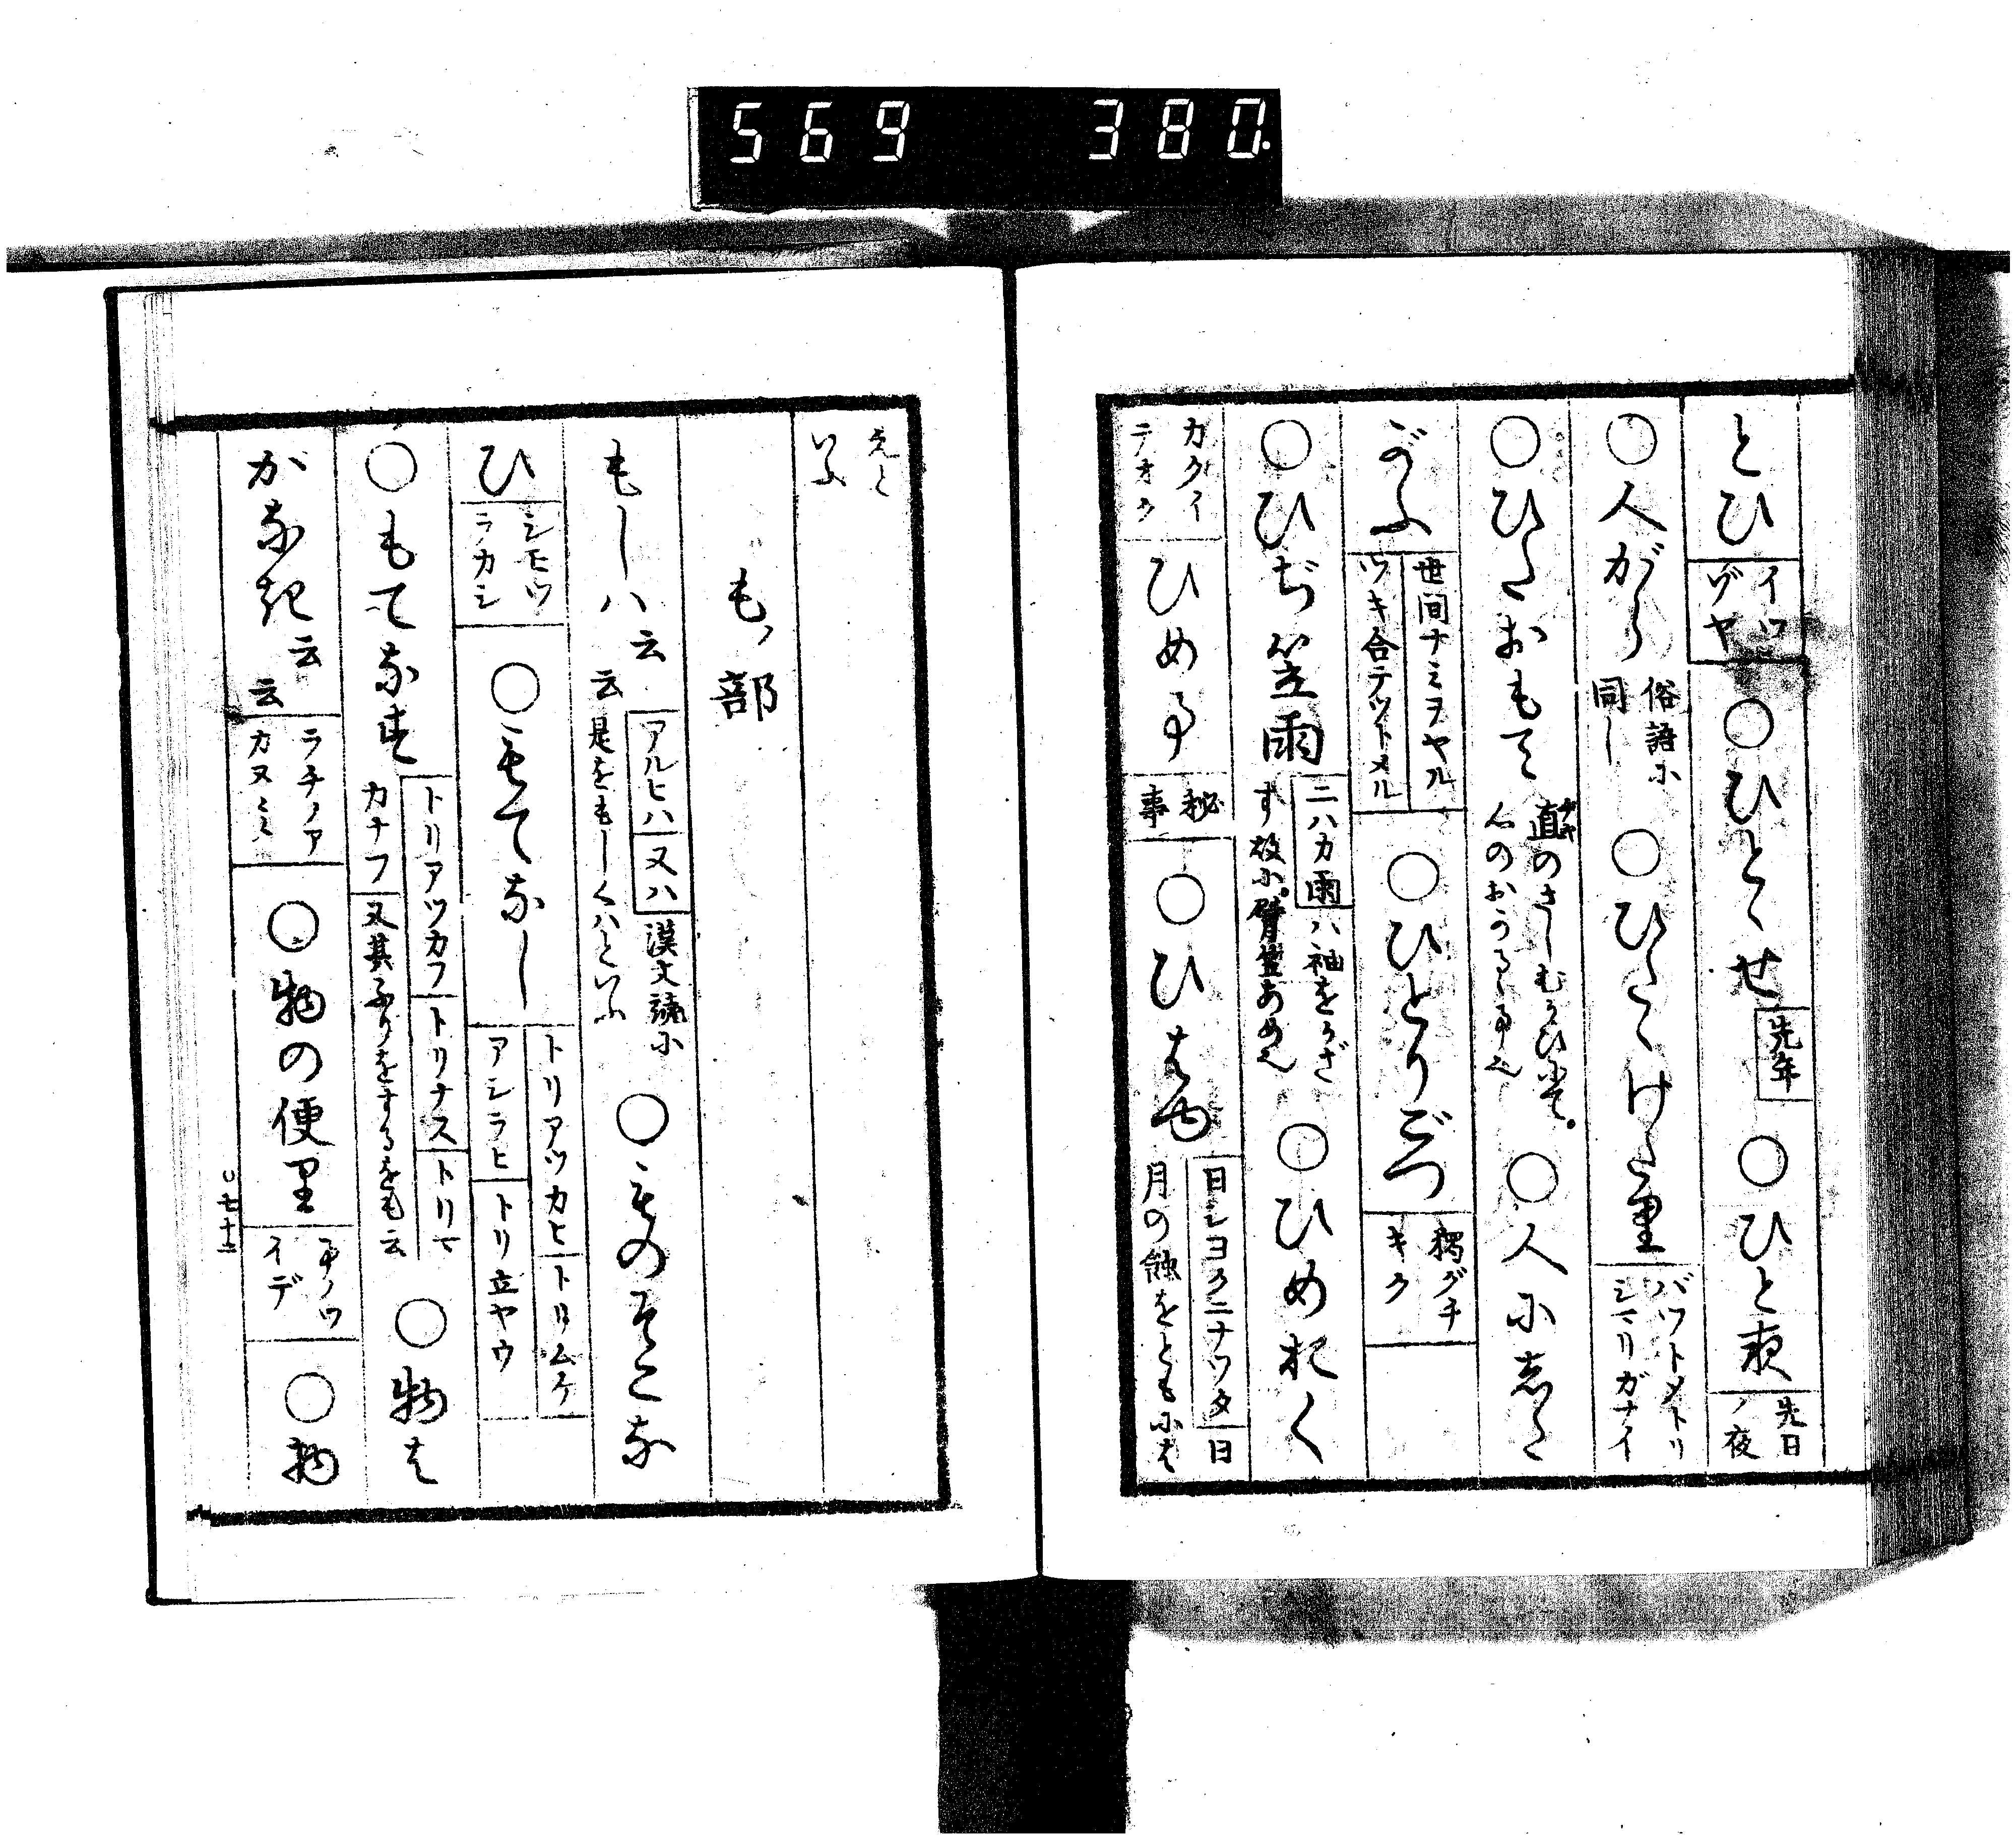 569 380.
とひ イロヅヤ ○ひとゝせ 先年 ○ひと夜 先日ノ夜
○人がら 俗語に同し ○ひたゝけたり バツトメトリシマリガナイ
○ひたおもて 直のさしむかひにて。 ○人にした
がふ 世間ナミヲヤル ツキ合テツトメル ○ひとりごつ 獨グチキク
○ひぢ笠雨 ニハカ雨 ハ袖をかざす故に。臂笠あめ也 ○ひめおく
カクイテオク ひめ事 秘事 ○ひはゆ 日シヨクニナツタ 日月の蝕をともには
えと いふ
もノ部
もしハ云云 アルヒハ 又ハ 漢文讀に是をもしくハといふ ○ものそこな
ひ シモヒツラカシ ○もてなし トリアツカヒ トリムケ アシラヒ トリ立ヤウ
○もてなす トリアツカフ トリナス トリマカナフ 又其ふりをするをも云 ○物は
がなき云云 ラチノアカヌヽミ ○物の便り 事ノツイデ ○物
○七十二